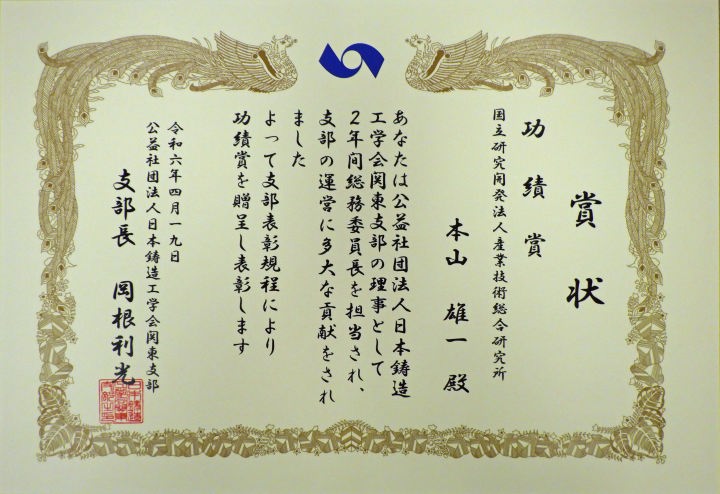 賞状
功績賞
国立研究開発法人産業技術総合研究所
本山 雄一 殿
あなたは公益社団法人日本鋳造
工学会関東支部の理事として
２年间総務委員長を担当され、
支部の運営に多大な貢献をされ
ました
よって支部表彰規程により
功績賞を贈呈し表彰します
令和六年四月一九日
公益社団法人日本鋳造工学会関東支部
支部長 岡根利光